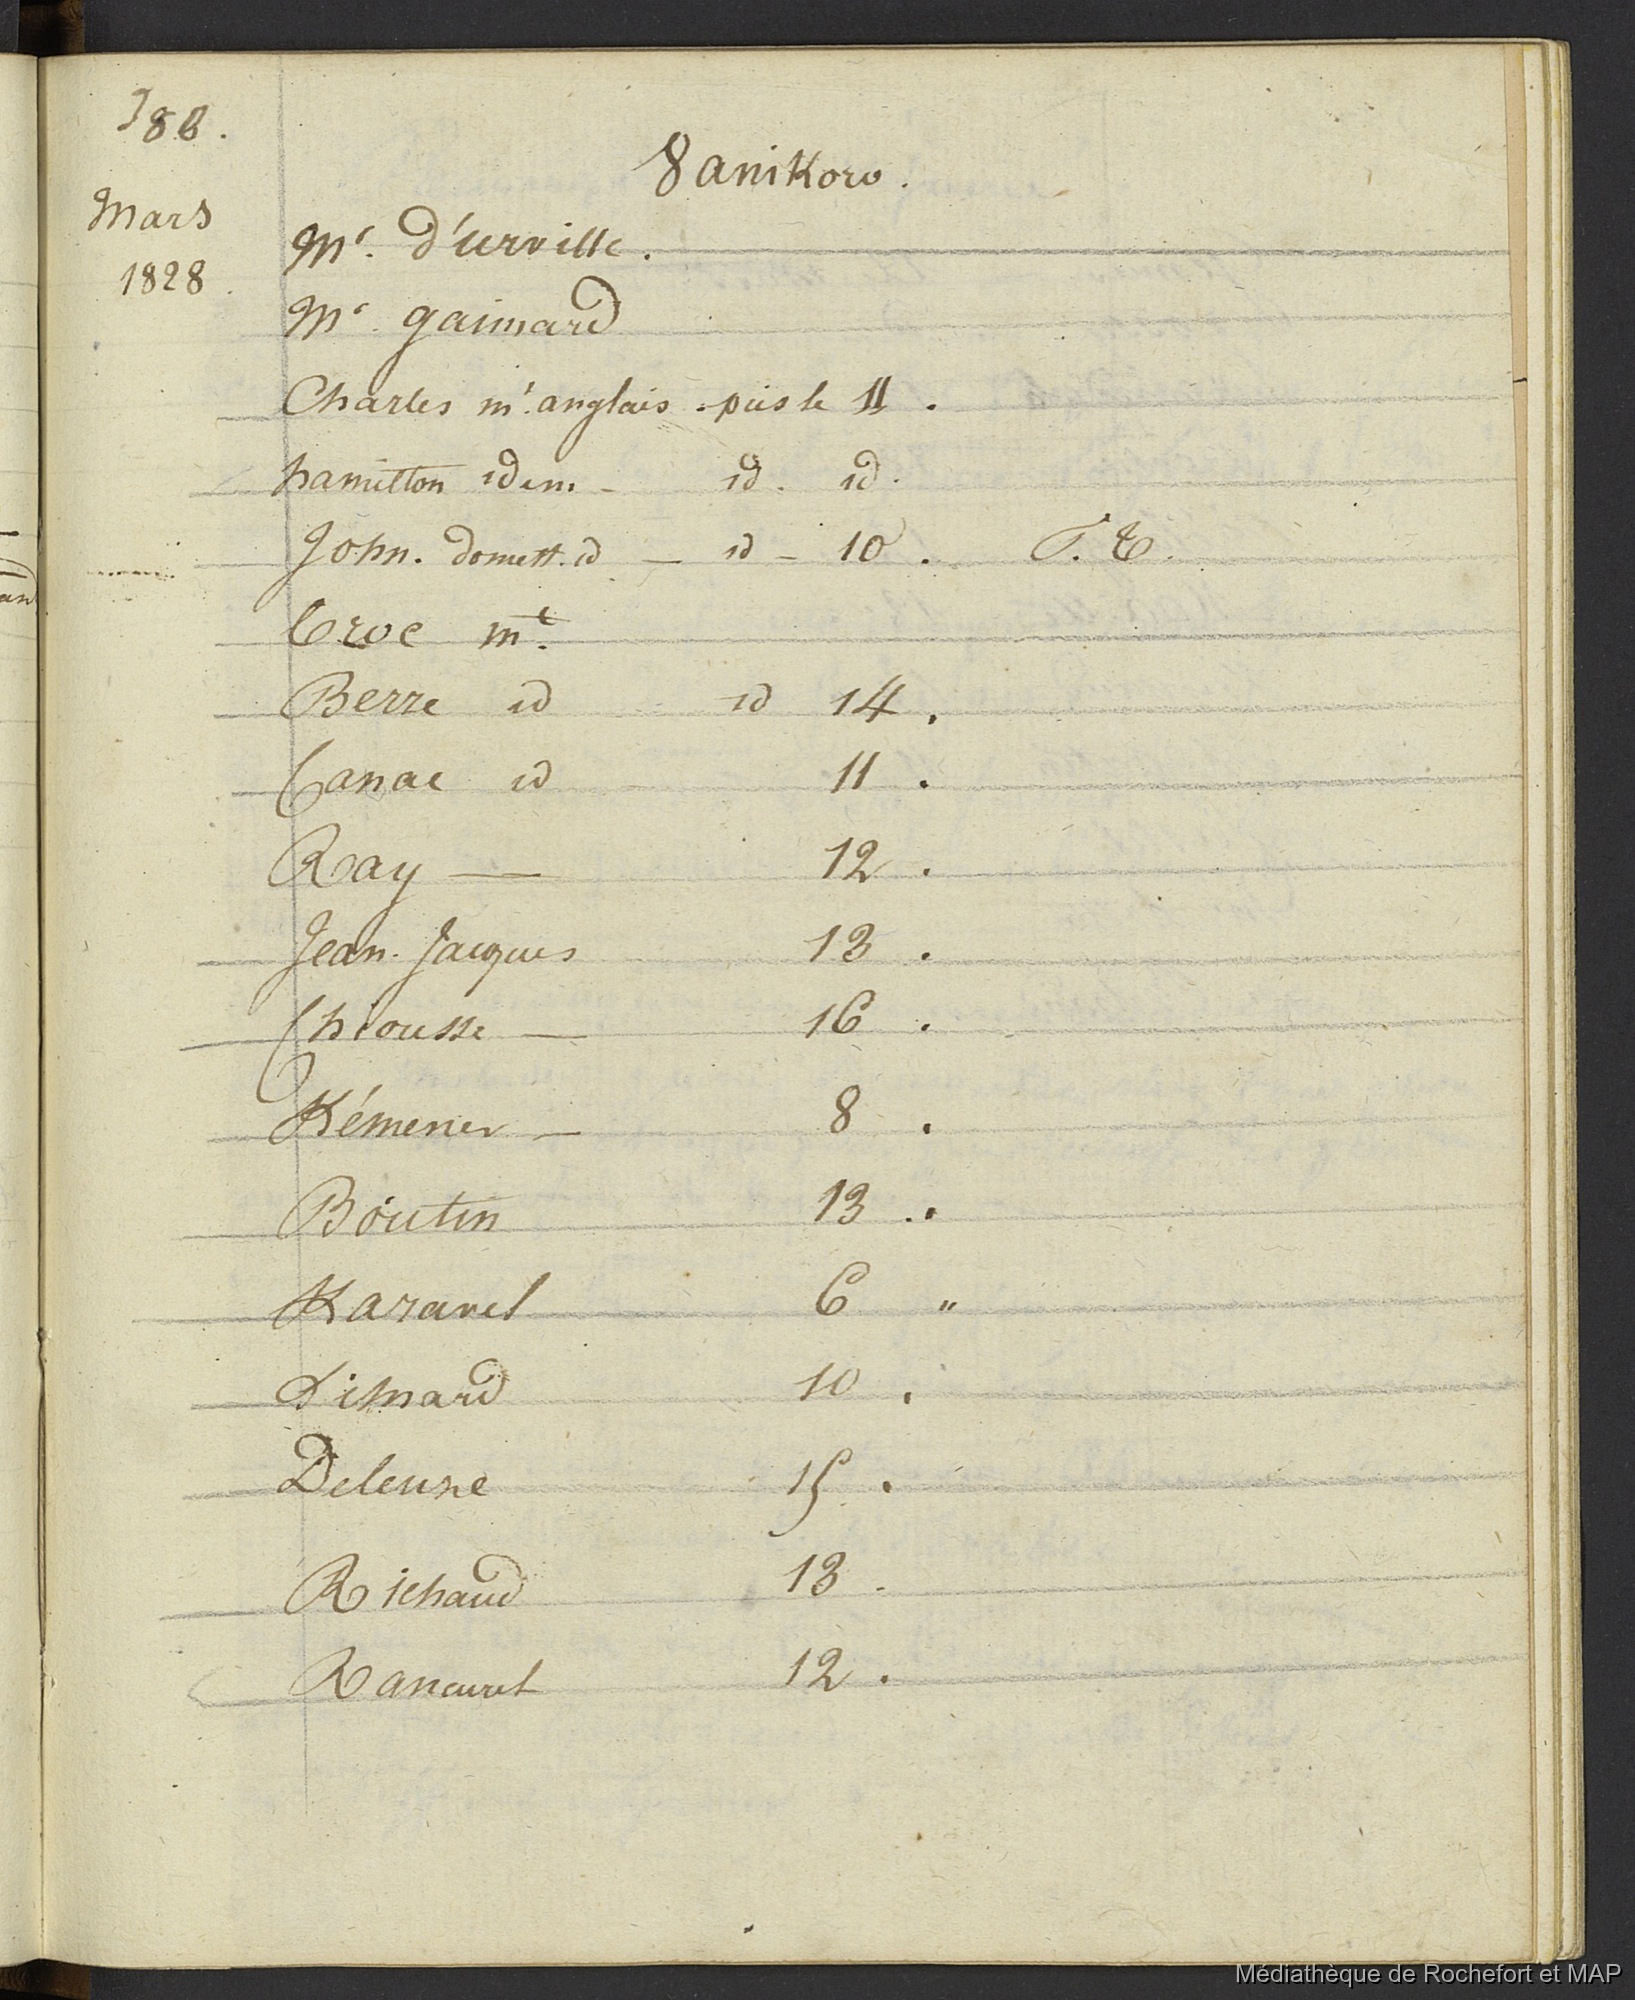 188.
Mars
1828.
Vanikoro.
Mr. d'urville.
Mr. gaimard
Charles mt. anglais . puis le 11 .
hamilton idem - id. id.
John. domett. id — id - 10 . T. E.
Croc mt.
Berre id id 14 .
Canac id 11 .
Ray — 12 .
Jean. Jacques 13 .
Chiousse — 16 .
Kémener — 8 .
Boutin 13 ..
Karavel 6 "
Dimard 10 .
Deleuze 15 .
Richaud 13 -
Rancurel 12 .
Médiathèque de Rochefort et MAP